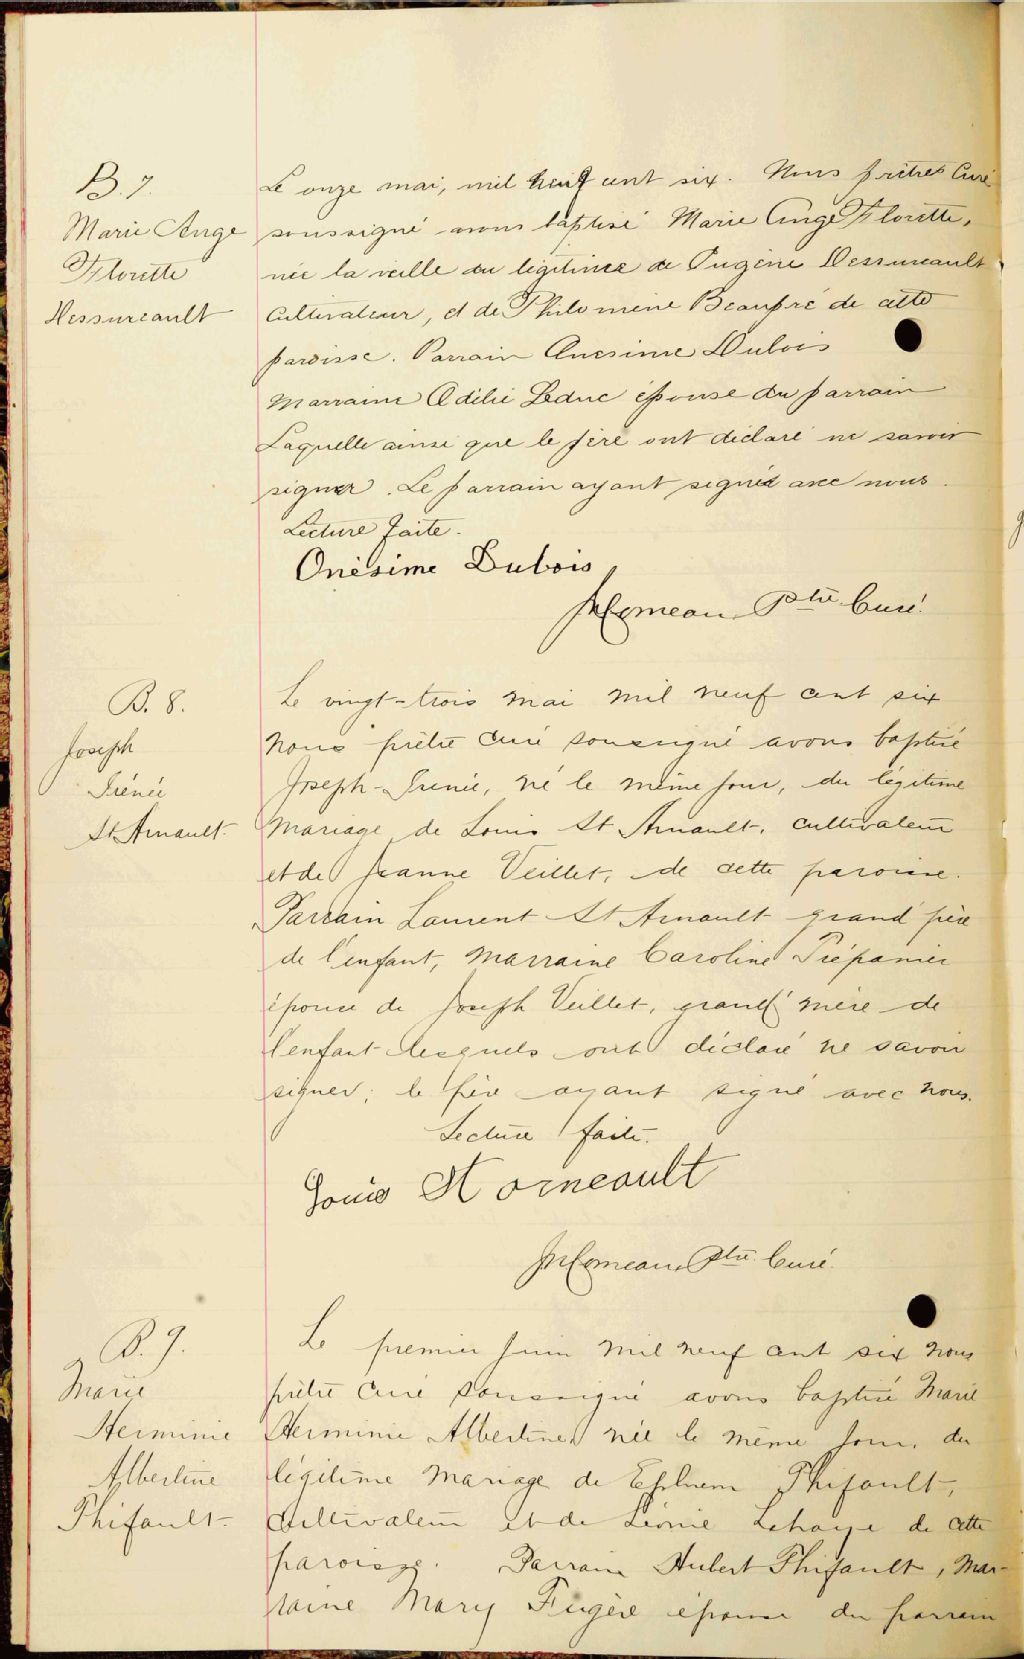 B. 7.
Marie Ange
Florette
Dessureault
Le onze mai, mil neuf cent six. Nous prêtre Curé
soussigné avons baptisé Marie Ange Florette,
née la veille du légitime de Eugène Dessureault
cultivateur, et de Philomène Beaupré de cette
paroisse. Parrain Onesime Dubois
Marraine Adélie Leduc épouse du parrain
Laquelle ainsi que le père ont déclaré ne savoir
signer. Le parrain ayant signé avec nous.
Lecture faite.
Onésime Dubois
Comeau Ptre Curé.
B. 8.
Joseph
Irénée
St Arnault.
Le vingt-trois mai mil neuf cent six
nous prêtre curé soussigné avons baptisé
Joseph-Irénée, né le même jour, du légitime
mariage de Louis St Arnault, cultivateur
et de Jeanne Veillet, de cette paroisse.
Parrain Laurent St Arnault grand'père
de l'enfant, marraine Caroline Trépanier
épouse de Joseph Veillet, grand'mère de
l'enfant lesquels ont déclaré ne savoir
signer; le père ayant signé avec nous.
Lecture faite.
Louis St arneault
Comeau Ptre Curé.
B. 9.
Marie
Herminie
Albertine
Thifault.
Le premier Juin mil neuf cent six nous
prêtre curé soussigné avons baptisé Marie
Herminie Albertine, née le même jour, du
légitime mariage de Ephrem Thifault,
cultivateur et de Léonie Lahaye de cette
paroisse. Parrain Hubert Thifault, Mar-
raine Mary Fugère épouse du parrain